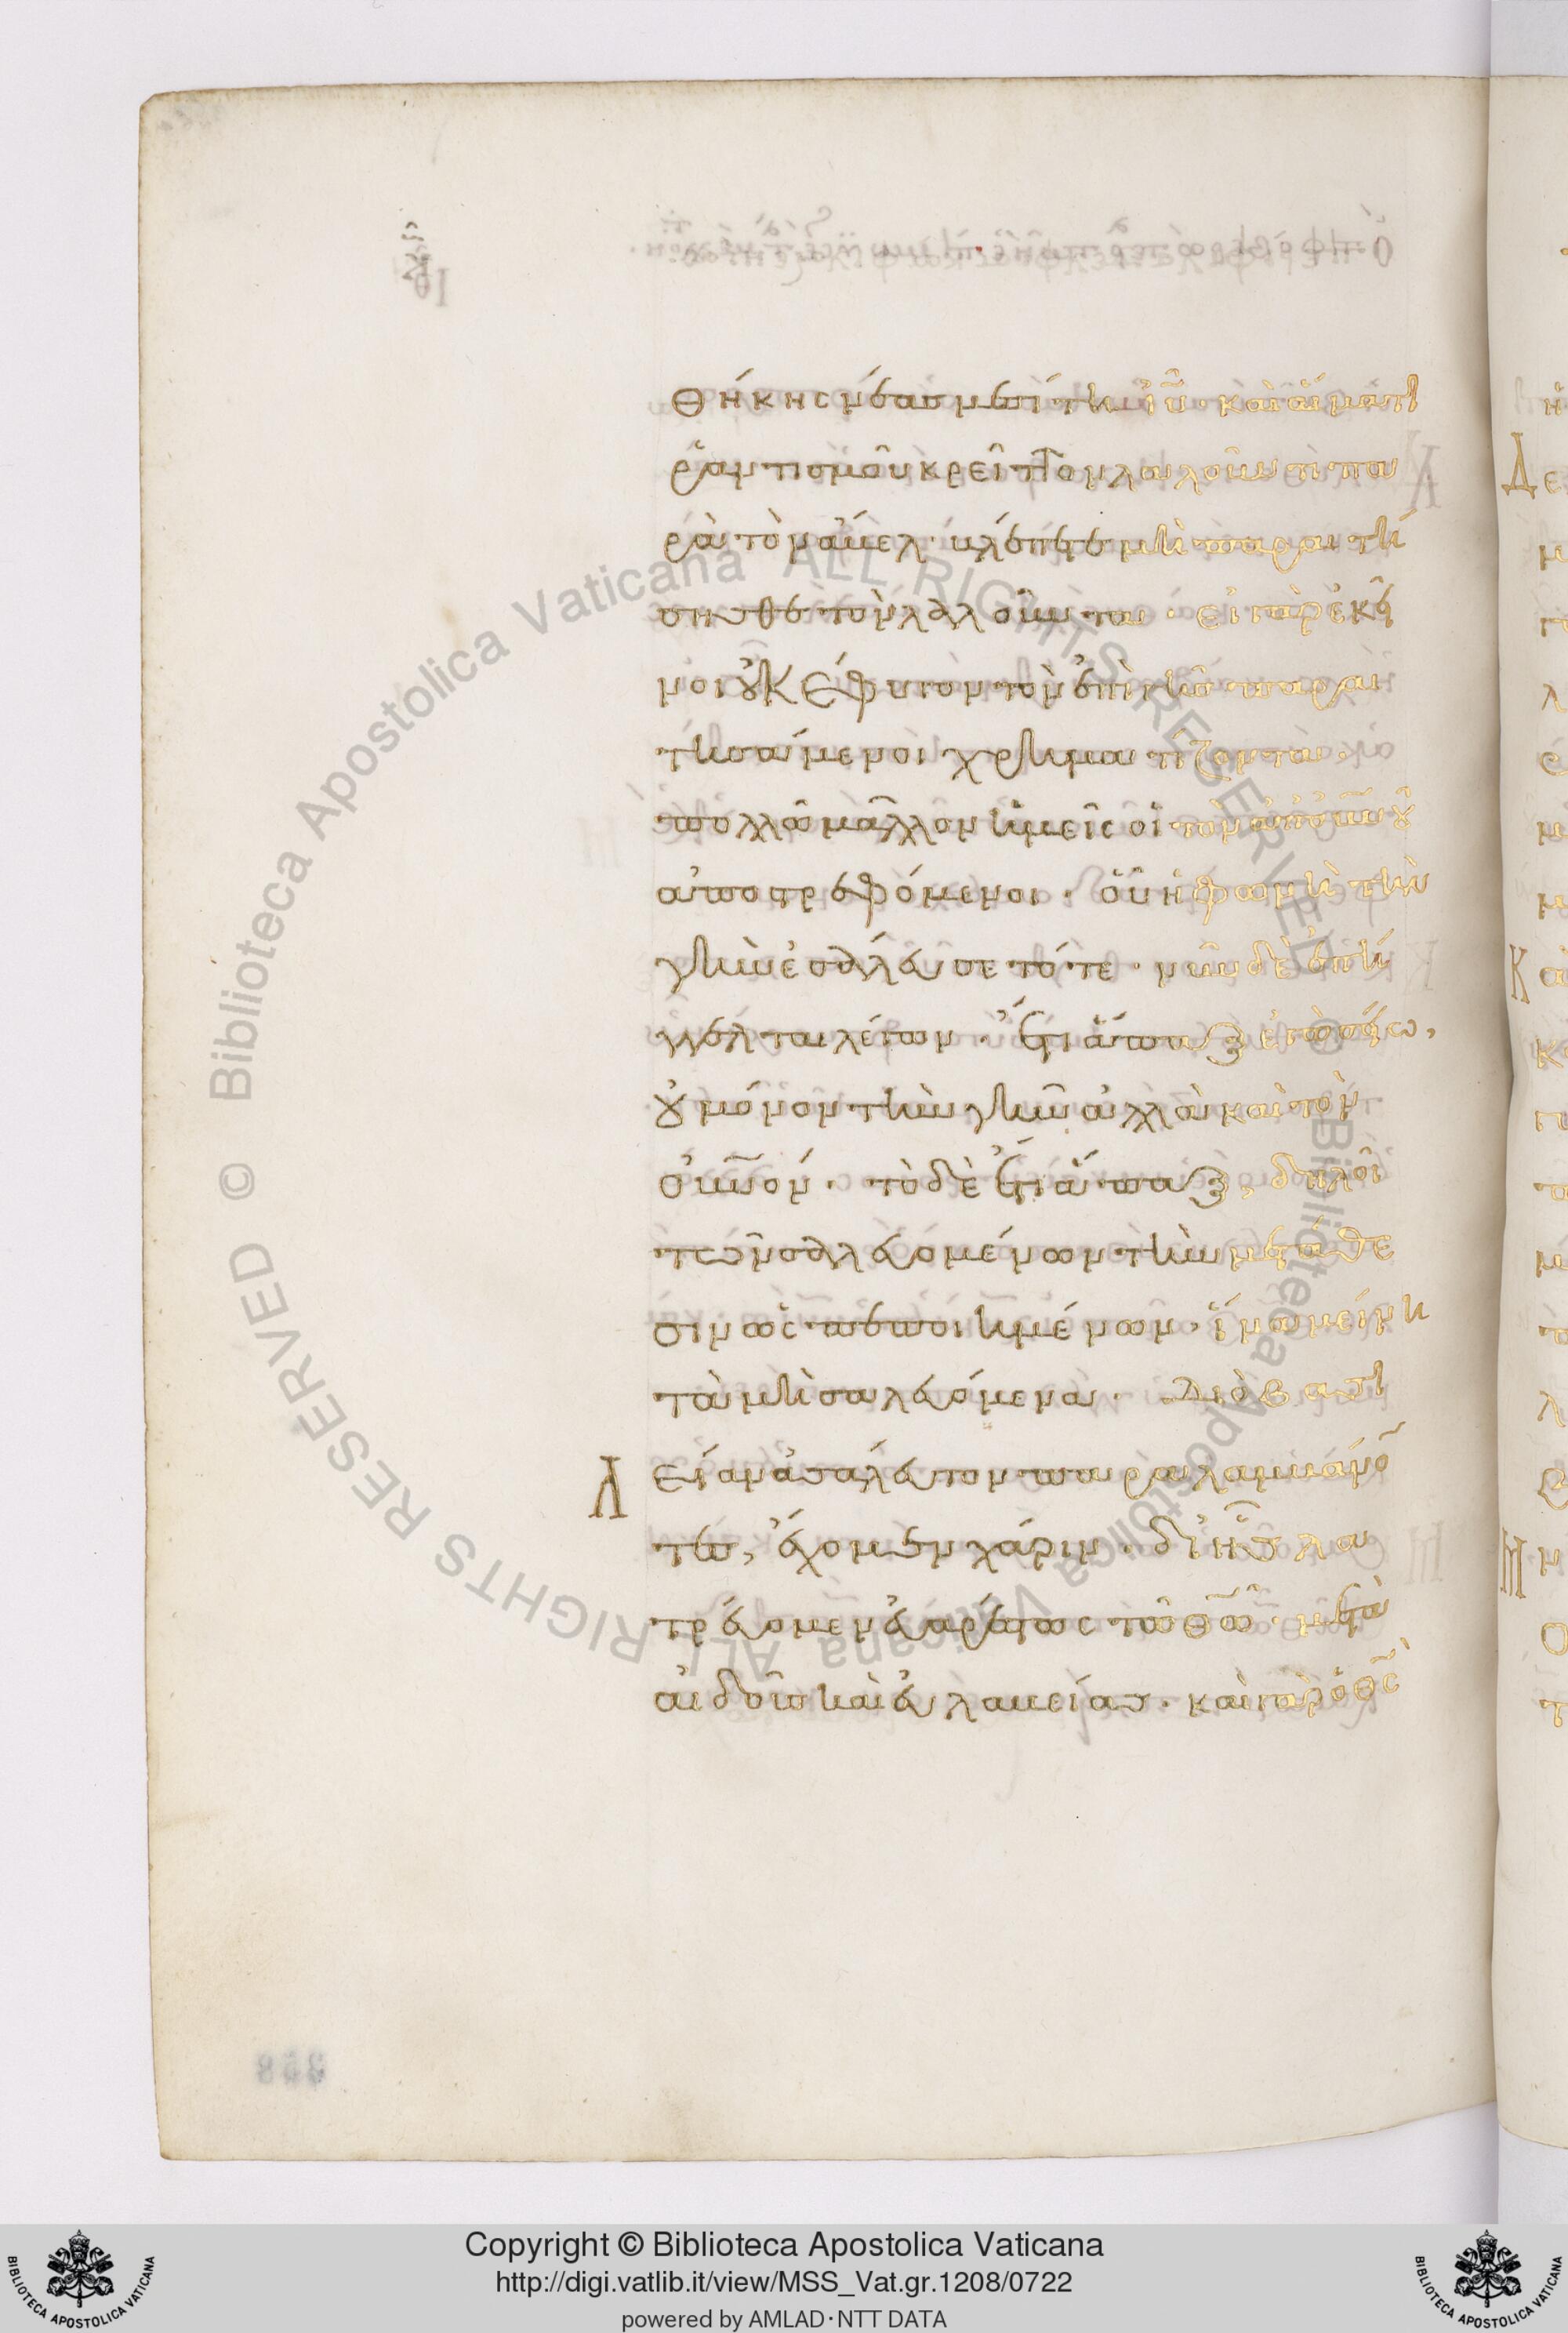 θήκης νέας μεσίτη ἰῡ· καὶ αἵματι
ῥαντισμοῦ κρεῖττον λαλοῦντι πα
ρὰ τὸν ἄβελ· βλέπετε μὴ παραιτή
σησθε τὸν λαλοῦντα· εἰ γὰρ ἐκεῖ
νοι οὐκ ἔφυγον τὸν ἐπὶ γῆς παραι
τησάμενοι χρηματίζοντα·
πολλῶ μᾶλλον ἡμεῖς οἱ τὸν ἀπ οὐνου
ἀποστρεφόμενοι· οὗ ἡ φωνὴ τὴν
γῆν ἐσάλευσε τότε· νῦν δὲ ἐπή
γγελται λέγων· ἔτι ἅπαξ ἐγὼ σείω,
οὐ μόνον τὴν γῆν ἀλλὰ καὶ τὸν
οὐνον· τὸ δὲ ἔτι ἅπαξ, δηλοῖ
τῶν σαλευομένων τὴν μετάθε
σιν ὡς πεποιημένων· ἵνα μείνη
τὰ μὴ σαλευόμενα· Διὸ βασι
Λ είαν ἀσάλευτον παραλαμβάνο
τες, ἔχομεν χάριν· δι' ἧς λα
τρεύομεν εὐαρέστως τῶ θῶ· μετὰ
αἰδοῦς καὶ εὐλαβείας· καὶ γὰρ ὁ θς
Copyright © Biblioteca Apostolica Vaticana
http://digi.vatlib.it/view/MSS_Vat.gr.1208/0722
powered by AMLAD·NTT DATA